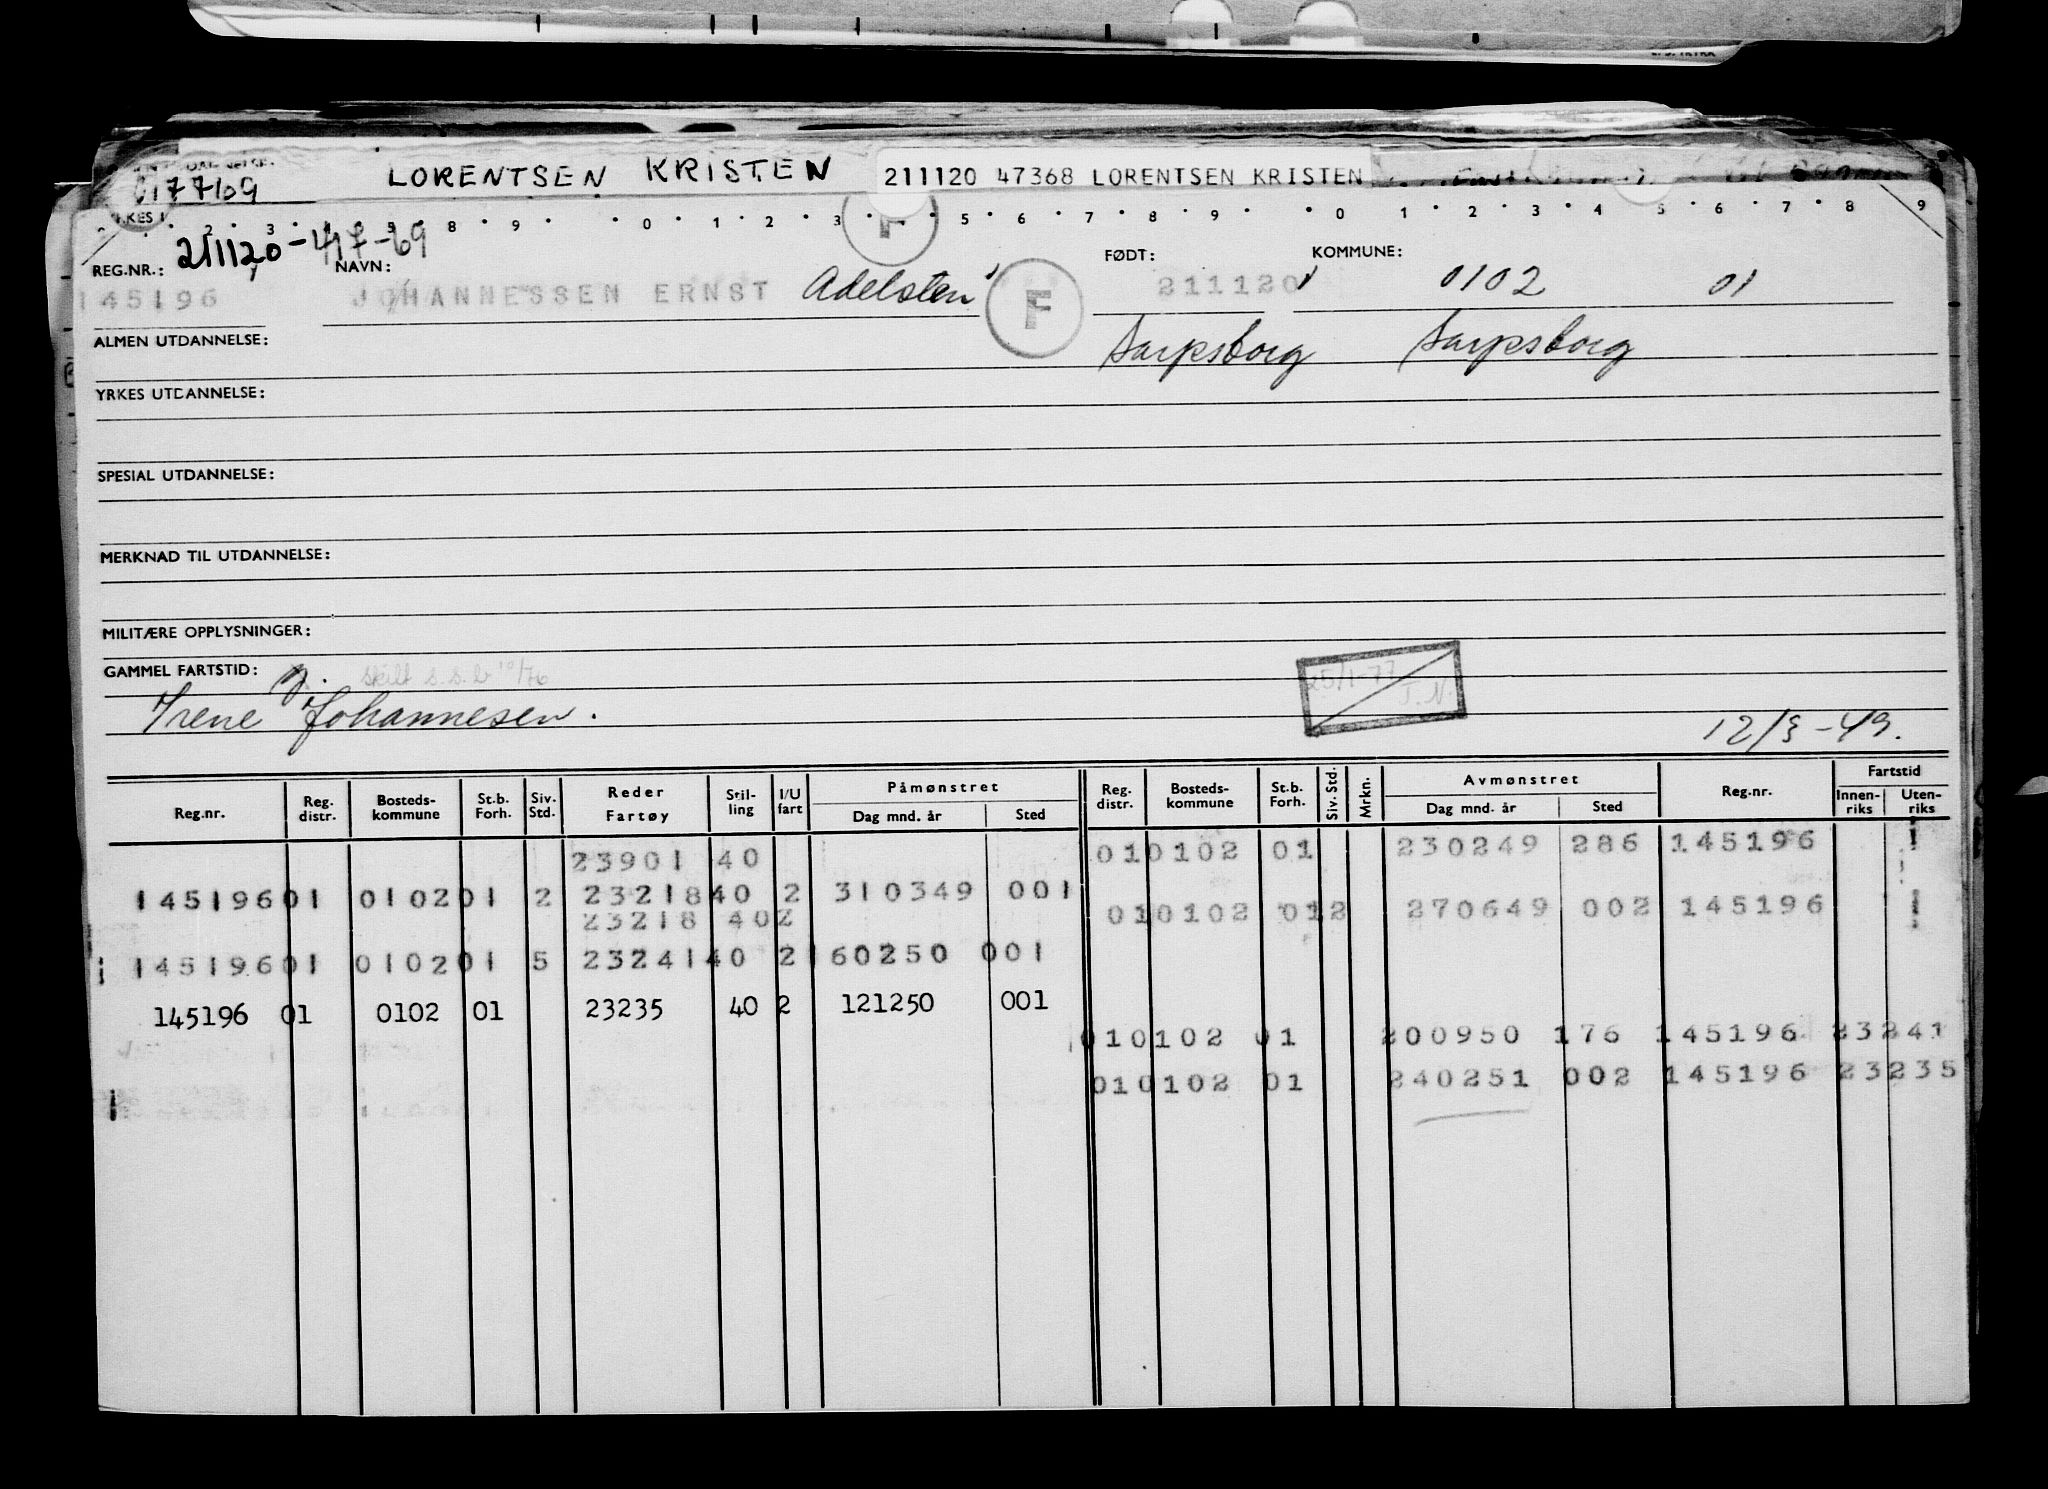 0177169
LORENTSEN KRISTEN
211120 47368 LORENTSEN KRISTEN
211120-417-69
REG.NR.: NAVN: FØDT: KOMMUNE:
145196 JOHANNESSEN ERNST Adelsten F 211120 0102 01
ALMEN UTDANNELSE: Sarpsborg Sarpsborg
YRKES UTDANNELSE:
SPESIAL UTDANNELSE:
MERKNAD TIL UTDANNELSE:
MILITÆRE OPPLYSNINGER:
GAMMEL FARTSTID: Skilt s.s.b 10/76
25/1-77 T.N.
Irene Johannesen. 12/3-49.
Reg.nr. Reg. distr. Bosteds- kommune St.b. Forh. Siv. Std. Reder Fartøy Stil- ling I/U fart Påmønstret Dag mnd. år Sted Reg. distr. Bosteds- kommune St.b. Forh. Siv. Std. Mrkn. Avmønstret Dag mnd. år Sted Reg.nr. Fartstid Innen- riks Uten- riks
23901 40 010102 01 230249 286 145196 1
145196 01 0102 01 2 23218 40 2 310349 001
23218 40 2 010102 01 2 270649 002 145196 1
145196 01 0102 01 5 23241 40 2 160250 001
145196 01 0102 01 23235 40 2 121250 001
010102 01 200950 176 145196 23241
010102 01 240251 002 145196 23235